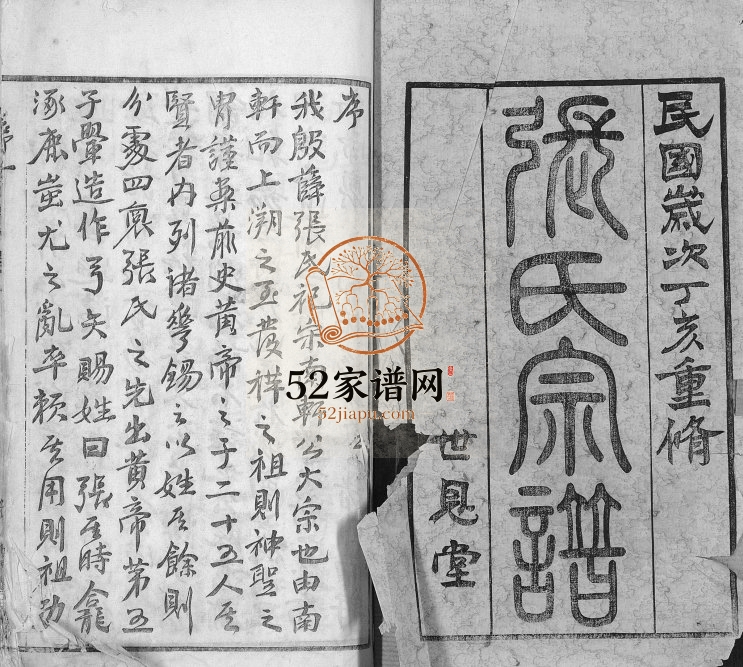 民國歲次丁亥重脩
張氏宗譜
世恩堂
序
我殷薛張氏祀宗南軒公大宗也由南
軒而上溯之至發祥之祖則神聖之
冑謹桑前史黃帝之子二十五人其
賢者內列諸學錫之以姓其餘則
分處四裔張氏之先出黃帝第五
子翬造作弓矢賜姓曰張在時龕
涿鹿蚩尤之亂率賴其用則祖功
52家谱网
52jiapu.com